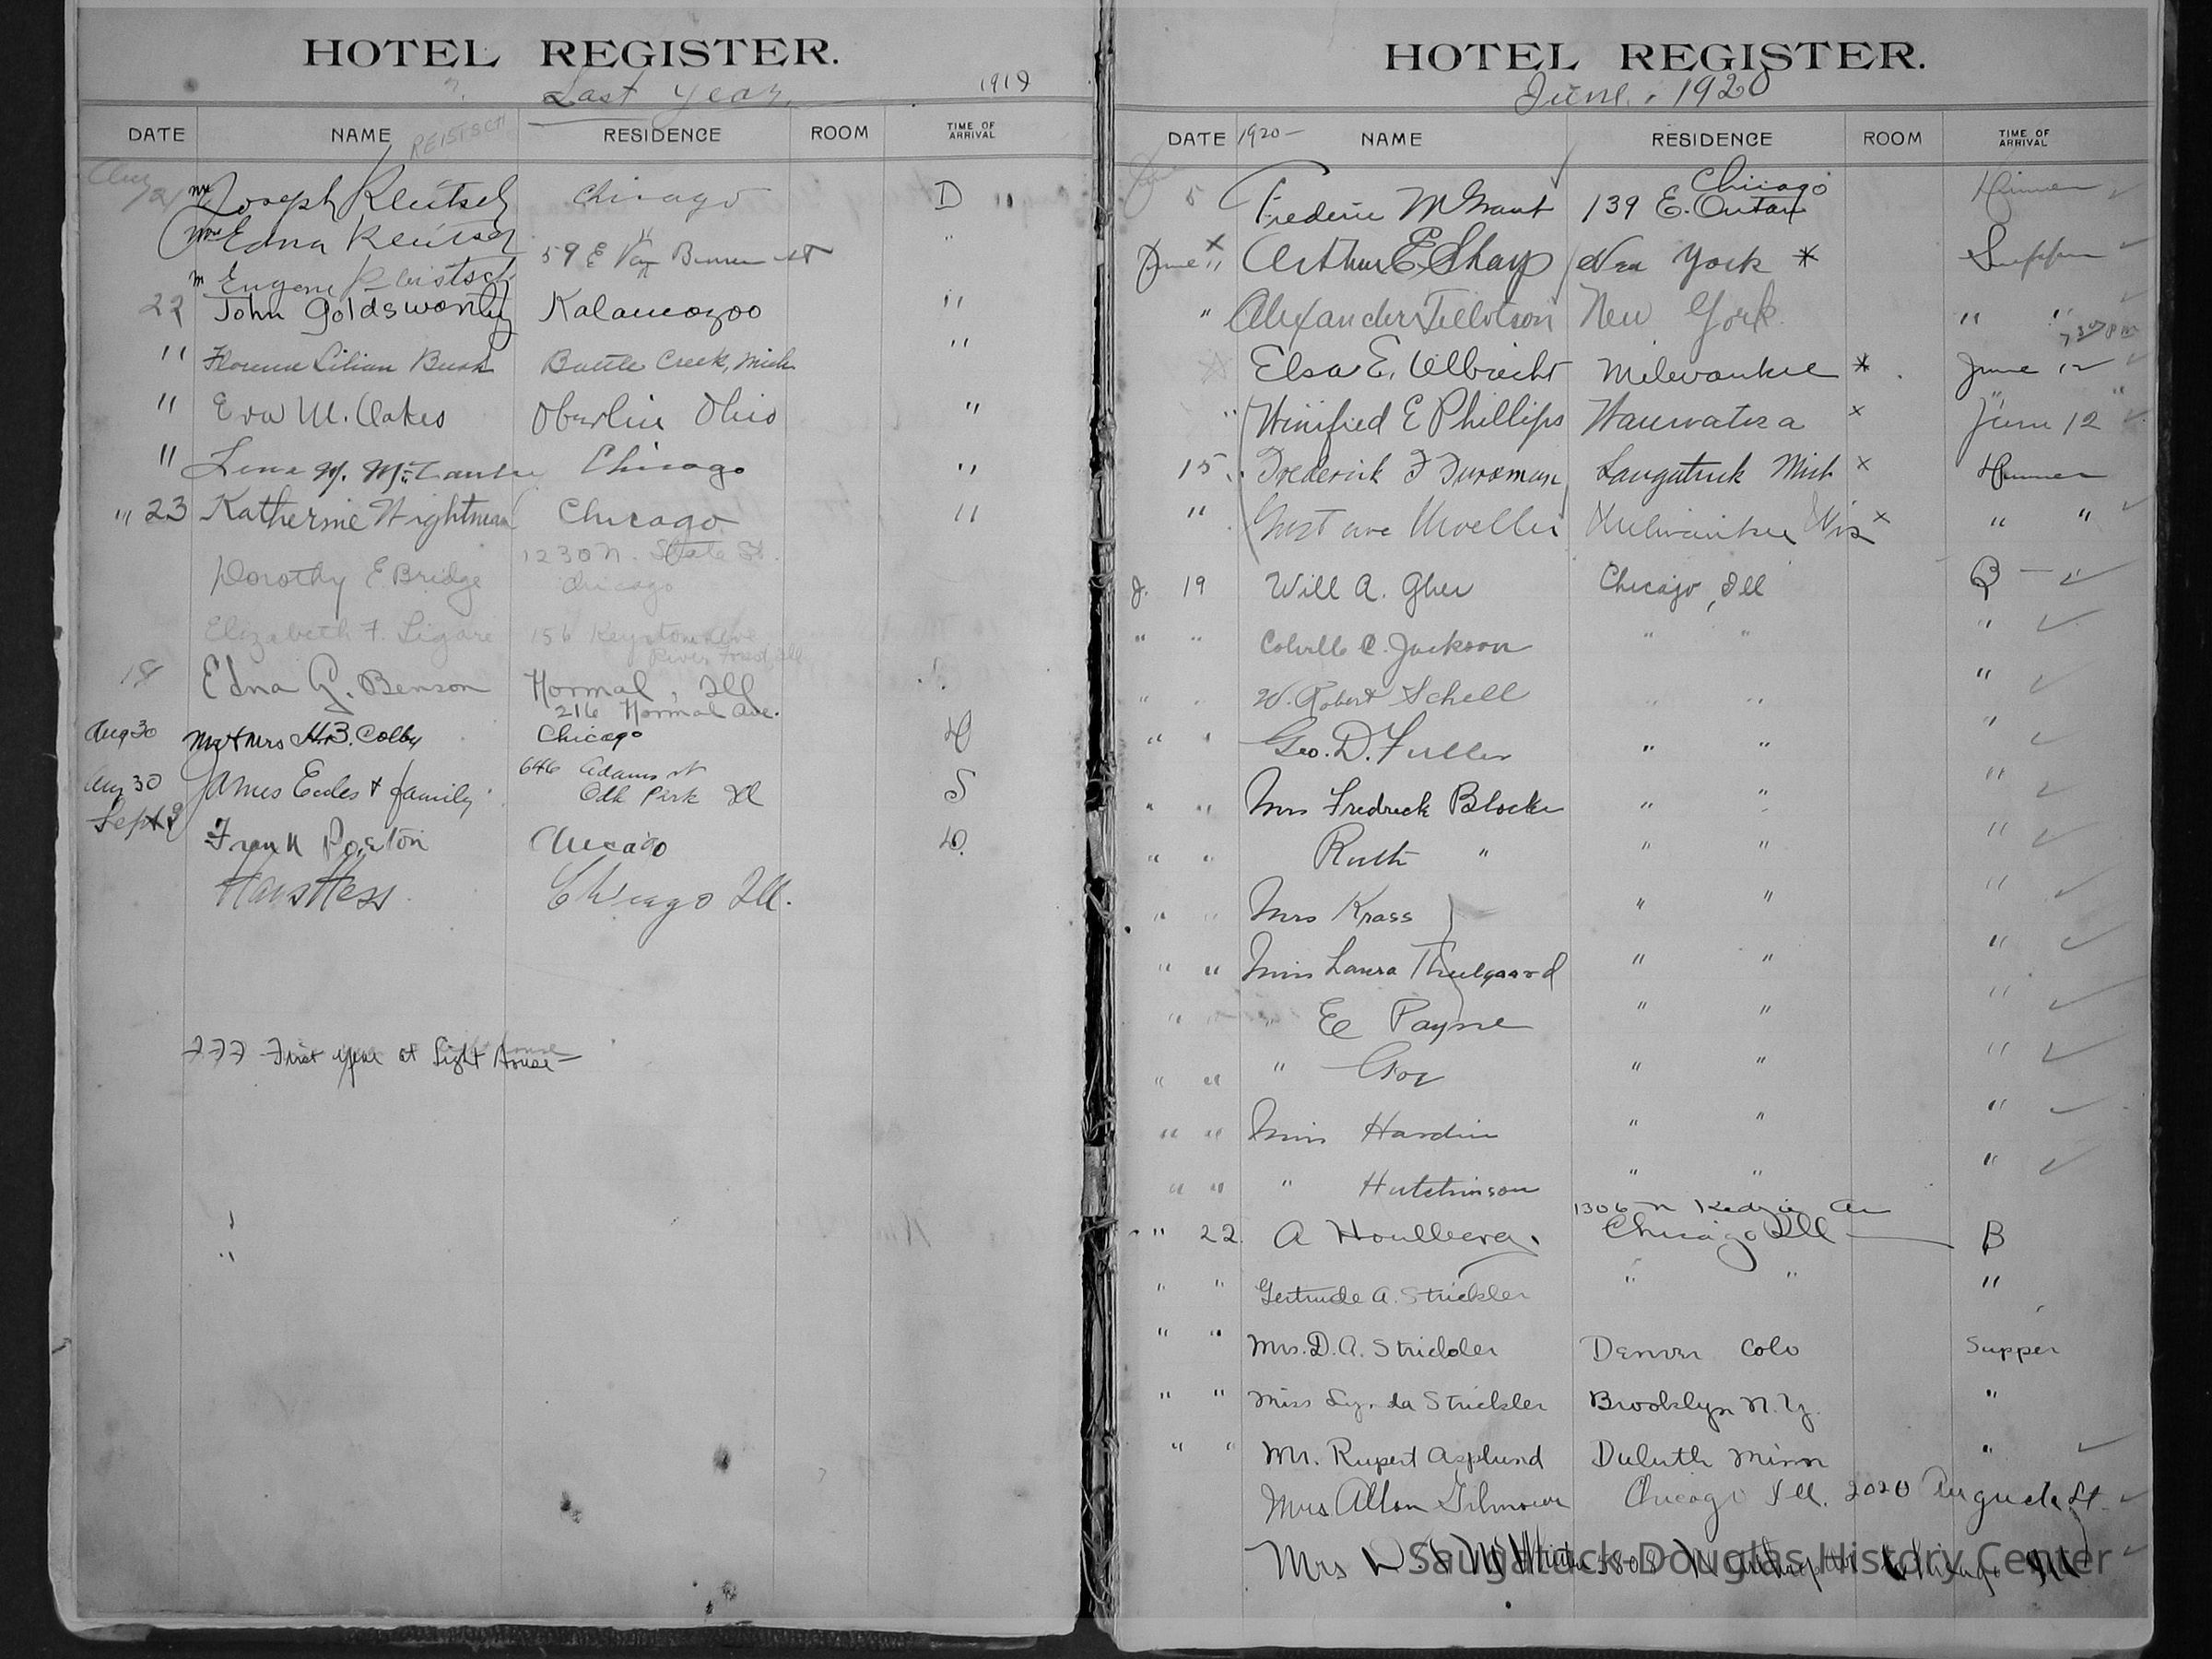 HOTEL REGISTER.
Last Year. 1919
DATE NAME REISTSCH RESIDENCE ROOM TIME OF ARRIVAL
Aug
21 Mr Joseph Chicago D "
Mrs Edna "
59 E Van Buren st
Mr Eugene
22 John Goldsworthy Kalamozoo "
" Florence Lilian Bush Battle Creek, Mich "
" Eva M. Oakes Oberlin Ohio "
" Lena M. Chicago "
" 23 Katherine Wightman Chicago "
1230 N. State St.
Dorothy E Bridge Chicago
Elizabeth F. Ligare 156 Keystone Ave
River Forest, Ill
18 Edna G. Benson Normal, Ill
216 Normal Ave.
Aug 30 Mr & Mrs H.B. Colby Chicago D
646 Adams st
Aug 30 James Eccles & family Oak Park Ill S
Sept
Frank Poeton Chicago D.
Hans Hess Chicago Ill.
FFF First year at Light House
HOTEL REGISTER.
June, 1920
DATE 1920- NAME RESIDENCE ROOM TIME OF ARRIVAL
Chicago
June 5 Frederic M Grant 139 E. Ontario Dinner ✓
June x " Arthur E. Sharp New York * Supper ✓
" Alexander Tillotson New York. " " ✓
7 30 P M
Elsa E. Ulbricht Milwaukee * June 12 ✓
" Winifred E Phillips Wauwatosa x June 12 " ✓
15 Frederick F Fursman Saugatuck Mich x Dinner
" Gustave Moeller Milwaukee Wis x " " ✓
J. 19 Will A. Gher Chicago, Ill B - ✓
" " C. Jackson " " " ✓
" " W. Robert Schell " " " ✓
" " Geo. D. Fuller " " " ✓
" " Mrs Fredrick Blocki " " " ✓
" " Ruth " " " " ✓
" " Mrs Krass " " " ✓
" " Miss Laura Thulgaard " " " ✓
" " " Payne " " " ✓
" " " " " " ✓
" " Miss Hardin " " " ✓
" " " Hutchinson " " " ✓
1306 N Kedzie Av
" 22. A Houlberg. Chicago Ill B
" " Gertrude A. Strickler " " "
" " Mrs. D. A. Strickler Denver Colo Supper
" " Miss Strickler Brooklyn N.Y. "
" " Mr. Rupert Asplund Duluth Minn " ✓
Mrs Allan Gilmour Chicago Ill. 2020 Augusta St. ✓
Mrs Chicago Ill ✓
Saugatuck-Douglas History Center